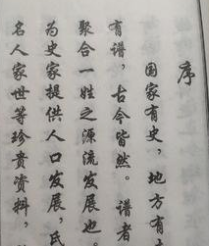 序
国家有史，地方有
有谱，古今皆然。谱者
聚合一姓之源流发展也。
为史家提供人口发展，民
名人家世等珍贵资料，